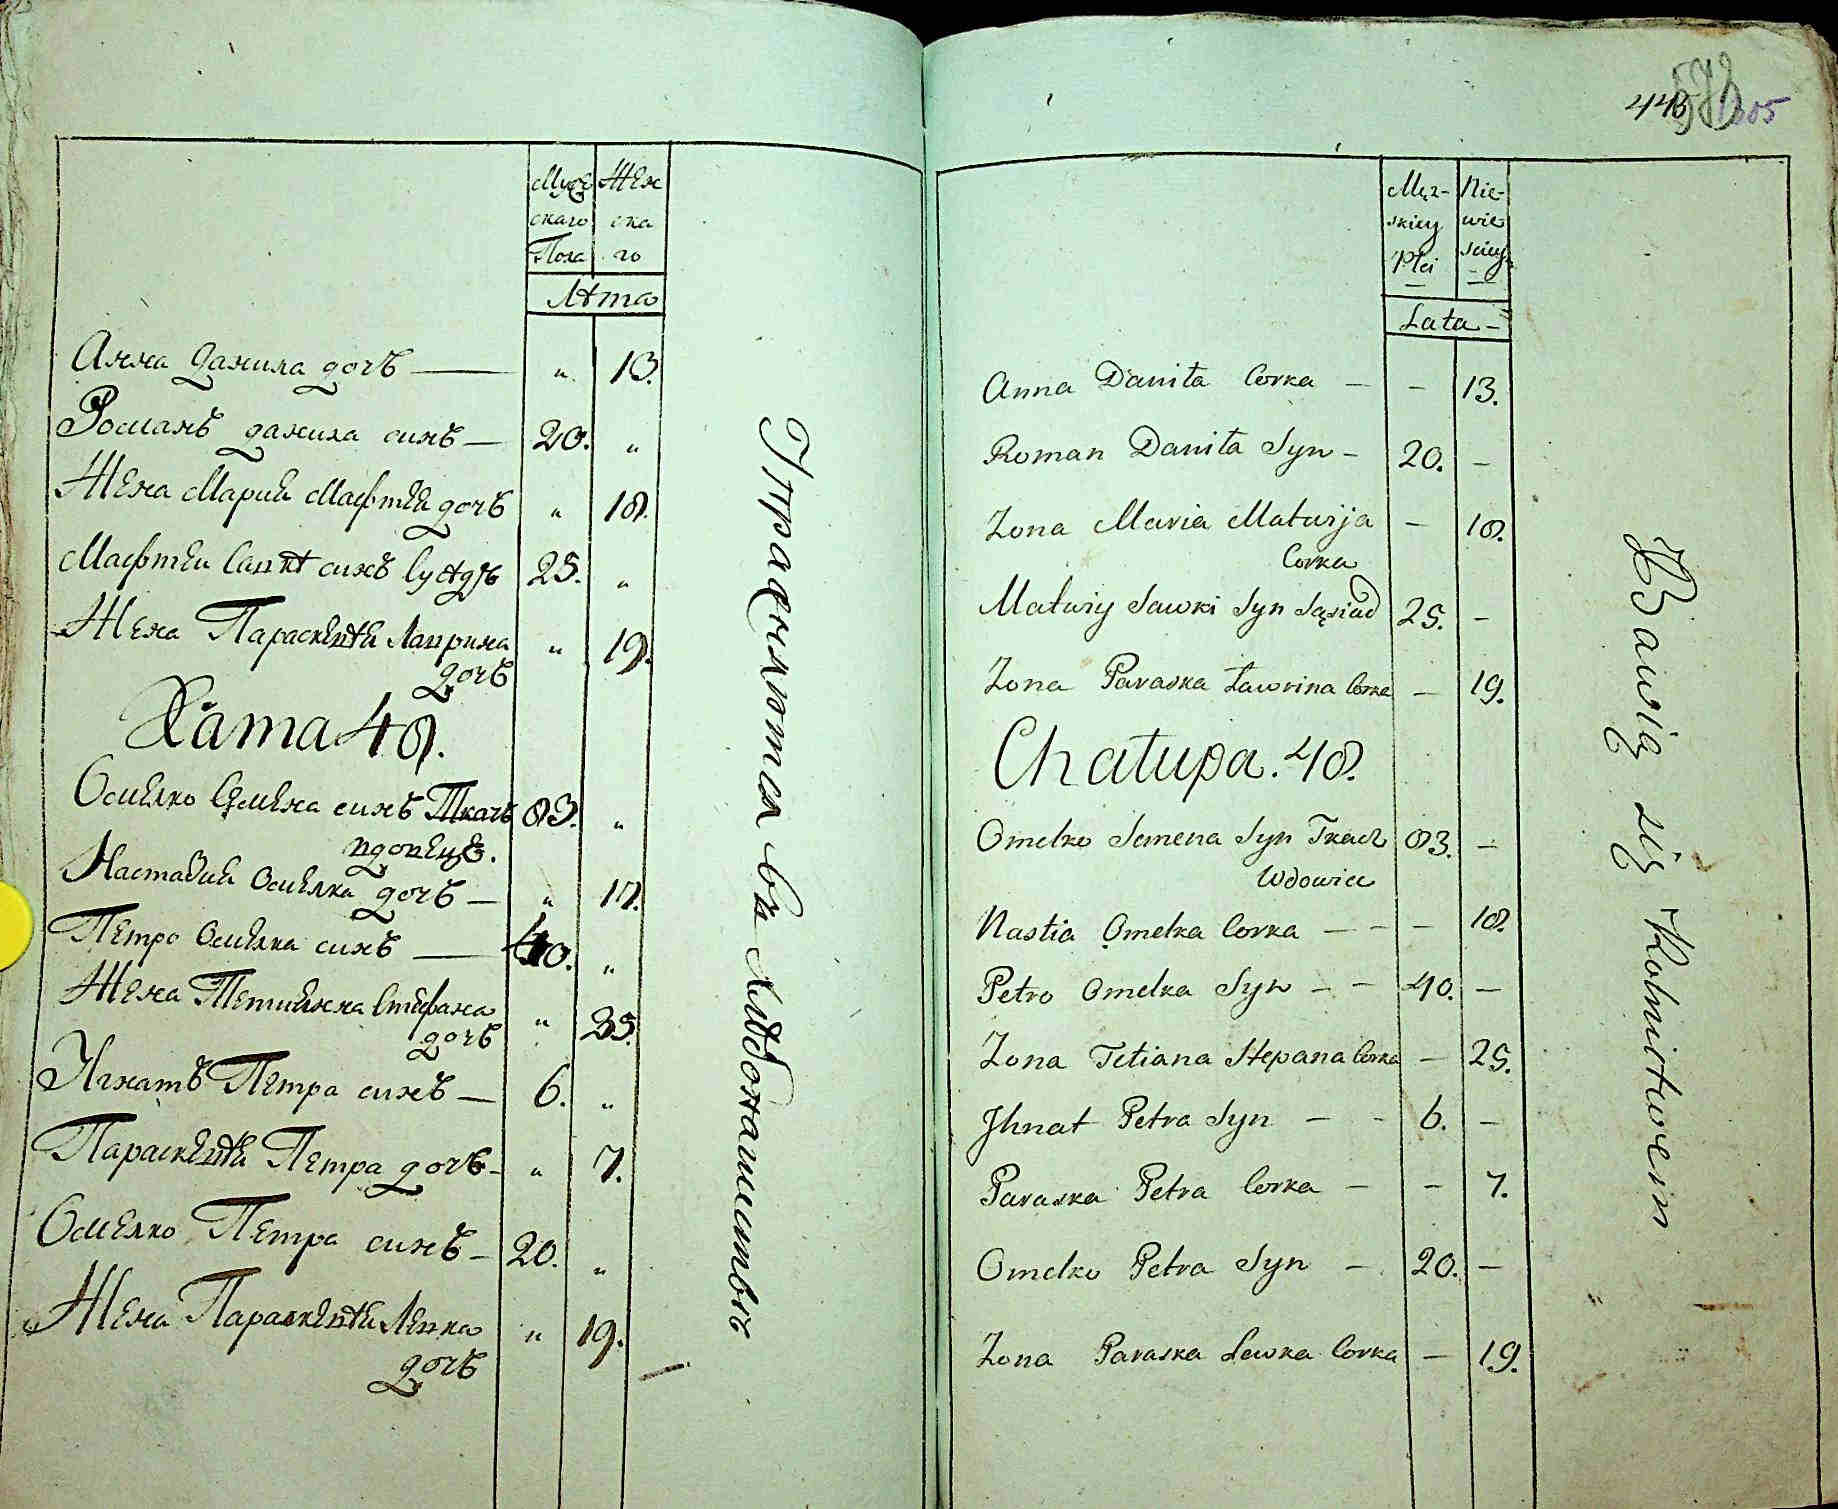 Мужескаго Пола
Женскаго
Лѣта
Анна Данила дочь — „ 13.
Романъ данила синъ — 20. „
Жена Мария Мафтея дочь „ 18.
Мафтеи Савки синъ Сусѣдъ 25. „
Жена Параскевѣя Лаврина „ 19.
дочь
Хата 48.
Омелко Семена синъ Ткачъ 83. „
вдовецъ.
Настасия Омелка дочь — „ 17.
Петро Омелка синъ — 40. „
Жена Тетияна Стефана „ 25.
дочь
Игнатъ Петра синъ — 6. „
Параскевѣя Петра дочь — „ 7.
Омелко Петра синъ — 20. „
Жена Параскевѣя Левка „ 19.
дочь
Упражняются въ хлѣбопашествѣ
443 605
Męz-
skiey
Plci
Nie-
wie
sciey
Lata —
Anna Daniła Corka — — 13.
Roman Daniła Syn — 20. —
Zona Maria Matwija — 18.
Corka
Matwiy Sawki Syn Sąsiad 25. —
Zona Paraska Ławrina Corka — 19.
Chałupa. 48.
Omelko Semena Syn Tkacz 83. —
Wdowiec
Nastia Omelka Corka — — — 18.
Petro Omelka Syn — — 40. —
Zona Tetiana Stepana Corka — 25.
Jhnat Petra Syn — — 6. —
Paraska Petra Corka — — 7.
Omelko Petra Syn — 20. —
Zona Paraska Lewka Corka — 19.
Bawią się Rolnictwem